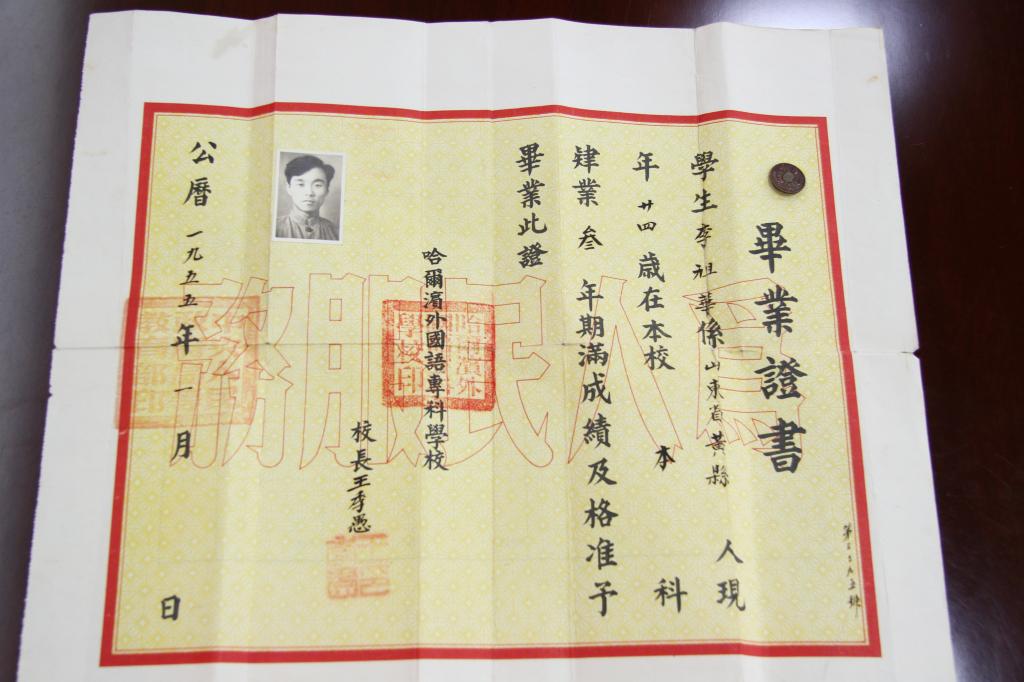 畢業證書
學生李祖華係山東省黃縣人現
年廿四歲在本校本科
肄業叁年期滿成績及格准予
畢業此證
哈爾濱外國語專科學校
校長王季愚
公曆一九五五年一月日
為人民服務